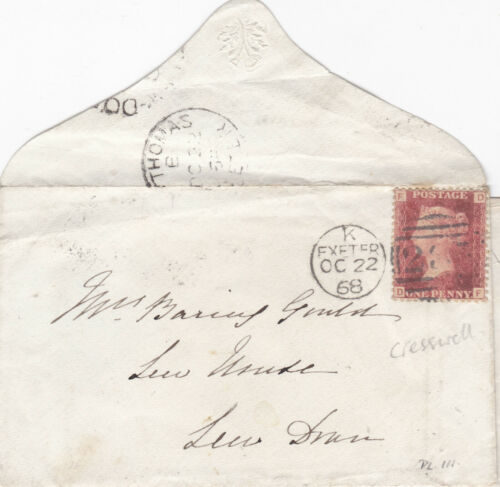 THOMAS
B
OC 22
F D
POSTAGE
D F
ONE PENNY
K
EXETER
OC 22
68
Mrs Baring Gould
Lew House
Lew Down
cresswell
PL 111.